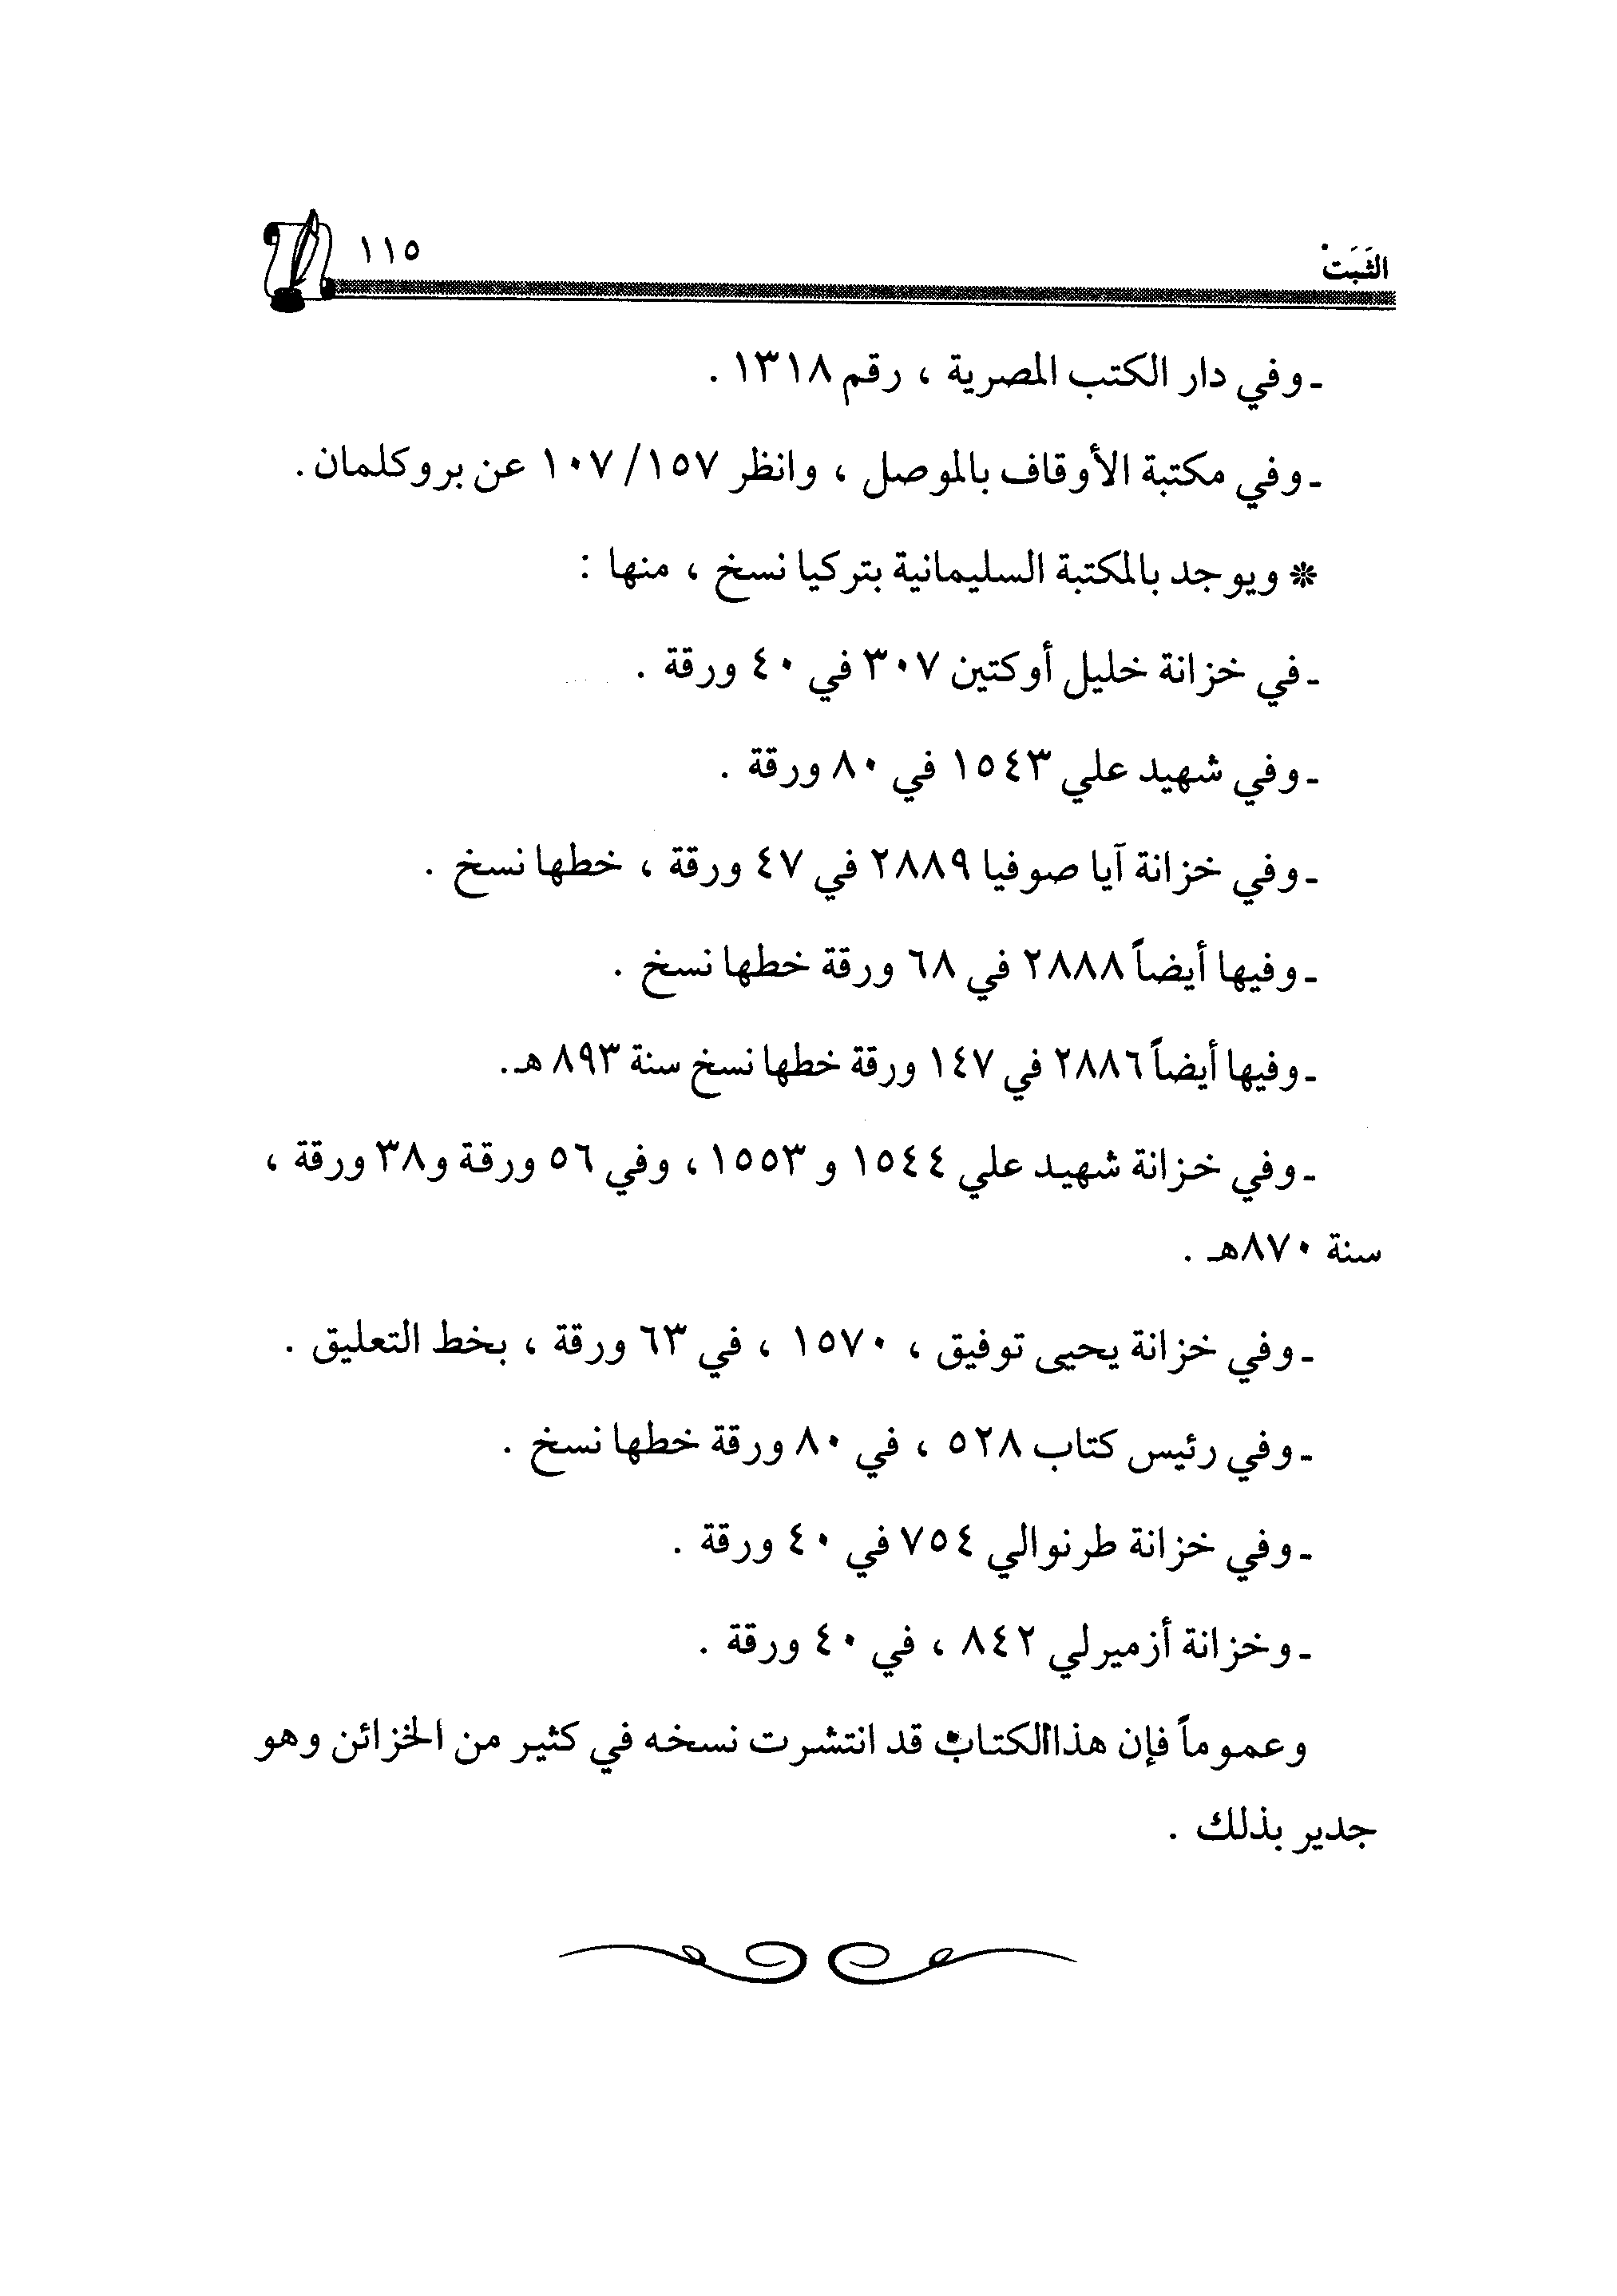 الثَبَتْ ١١٥
ـ وفي دار الكتب المصرية ، رقم ١٣١٨ .
ـ وفي مكتبة الأوقاف بالموصل ، وانظر ١٥٧/ ١٠٧ عن بروكلمان .
❊ ويوجد بالمكتبة السليمانية بتركيا نسخ ، منها :
ـ في خزانة خليل أوكتين ٣٠٧ في ٤٠ ورقة .
ـ وفي شهيد علي ١٥٤٣ في ٨٠ ورقة .
ـ وفي خزانة آيا صوفيا ٢٨٨٩ في ٤٧ ورقة ، خطها نسخ .
ـ وفيها أيضاً ٢٨٨٨ في ٦٨ ورقة خطها نسخ .
ـ وفيها أيضاً ٢٨٨٦ في ١٤٧ ورقة خطها نسخ سنة ٨٩٣ هـ .
ـ وفي خزانة شهيد علي ١٥٤٤ و ١٥٥٣ ، وفي ٥٦ ورقة و٣٨ ورقة ،
سنة ٨٧٠هـ .
ـ وفي خزانة يحيى توفيق ، ١٥٧٠ ، في ٦٣ ورقة ، بخط التعليق .
ـ وفي رئيس كتاب ٥٢٨ ، في ٨٠ ورقة خطها نسخ .
ـ وفي خزانة طرنوالي ٧٥٤ في ٤٠ ورقة .
ـ وخزانة أزميرلي ٨٤٢ ، في ٤٠ ورقة .
وعموماً فإن هذا الكتاب قد انتشرت نسخه في كثير من الخزائن وهو
جدير بذلك .